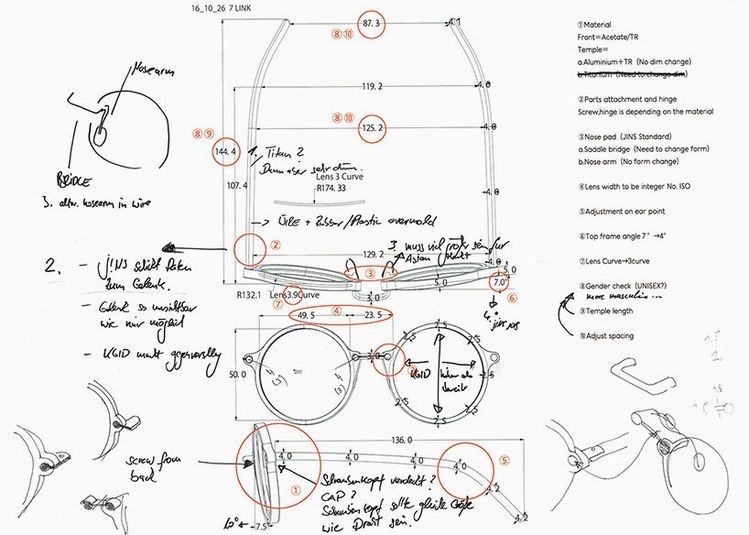 16_10_26 7 LINK
87.3
4.1
⑧⑩
4.0
119.2
4.0
⑧⑩
125.2
4.0
⑧⑨
144.4
1. Titan 2
Dann aber sehr dünn.
Lens 3 Curve
R174.33
107.4
4.0
→ Wire + Rubber/Plastic overmold
3. muss viel größer sein für
Asian
②
129.2
4.0
③
5.0
5.0
7.0°
⑥
R132.1
Lens3.9Curve
⑦
3.0
④
49.5
23.5
50.0
3.0
2.5
2.5
2.5
2.5
2.5
KGID
höher als
breit
136.0
4.0
4.0
4.0
4.0
⑤
4.2
①
10°
7.5
Schraubenkopf verdeckt?
CAP?
Schraubenkopf sollte gleiche Größe
wie Draht sein.
Screw from
back
Nosearm
BRIDGE
3. altr. nosearm in wire
2. - JINS schickt Daten
zum Gelenk.
- Gelenk so unsichtbar
wie nur möglich
- KGID macht ggf.
①Material
Front=Acetate/TR
Temple=
a.Aluminium+TR (No dim change)
b.Titanium (Need to change dim)
②Parts attachment and hinge
Screw,hinge is depending on the material
③Nose pad (JINS Standard)
a.Saddle bridge (Need to change form)
b.Nose arm (No form change)
④Lens width to be integer No. ISO
⑤Adjustment on ear point
⑥Top frame angle 7° →4°
⑦Lens Curve→3curve
⑧Gender check (UNISEX?)
more masculine...
⑨Temple length
⑩Adjust spacing